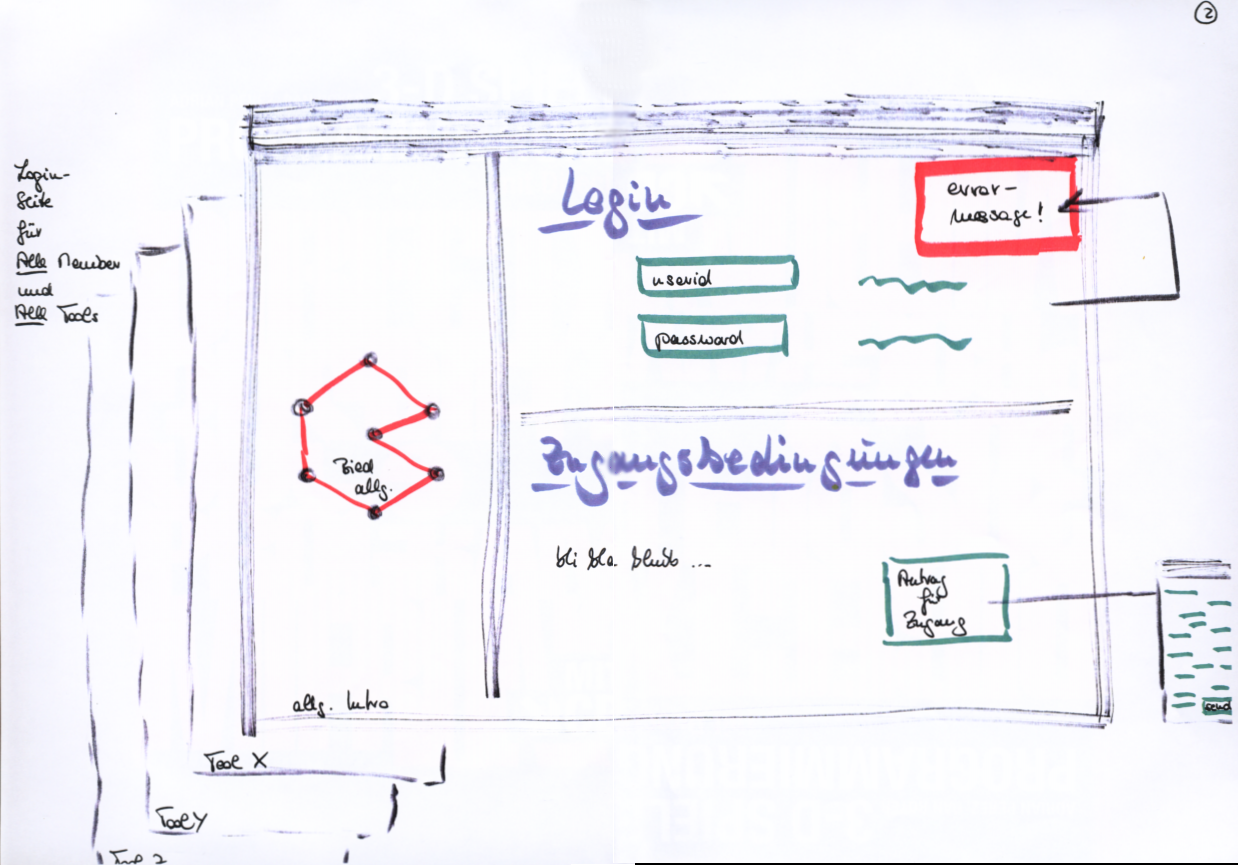 2
Login-
Seite
für
Alle Member
und
Alle Tools
Login
error-
message!
userid
password
Zugangsbedingungen
bli bla blubb ...
Antrag
für
Zugang
send
allg.
allg. Intro
Tool X
Tool Y
Tool Z